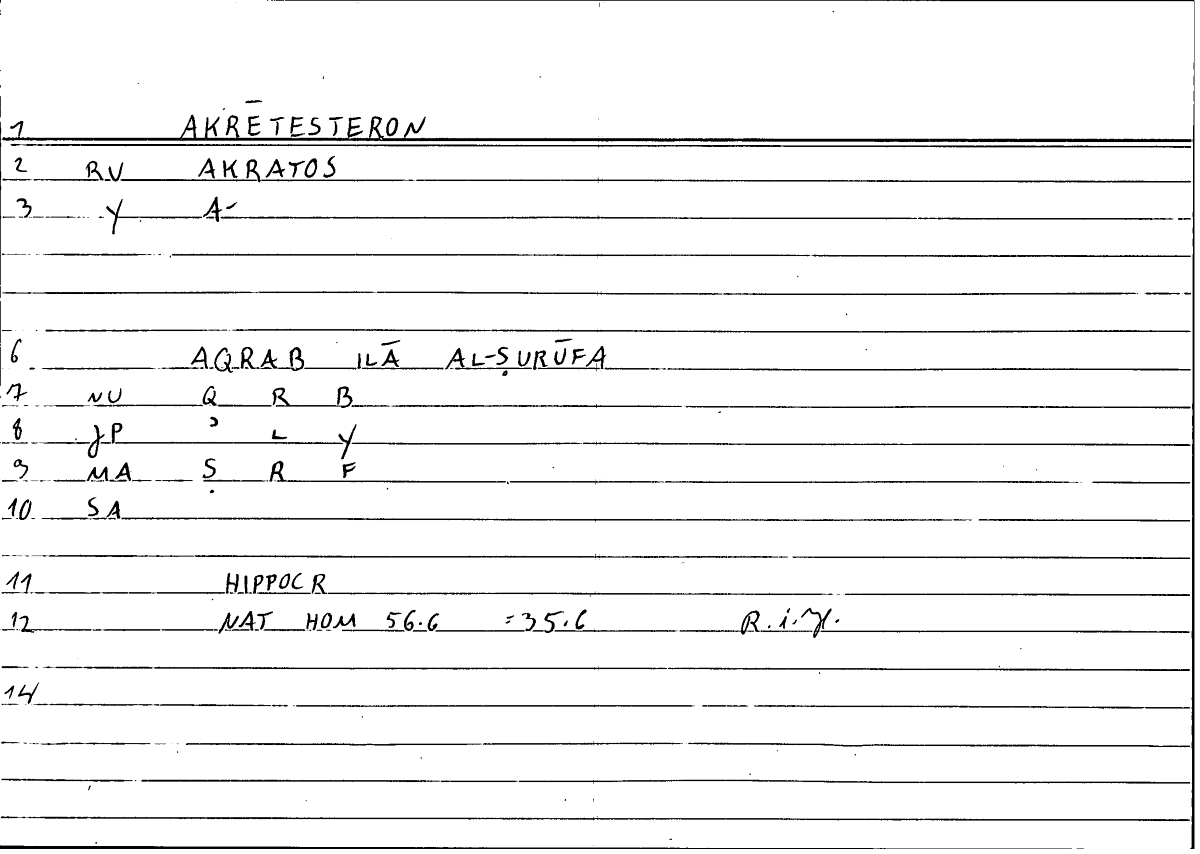 1 AKRĒTESTERON
2 RV AKRATOS
3 Y A-
6 AQRAB ILĀ AL-ṢURŪFA
7 NU Q R B
8 JP ʾ L Y
9 MA Ṣ R F
10 SA
11 HIPPOCR
12 NAT HOM 56.6 =35.6
14